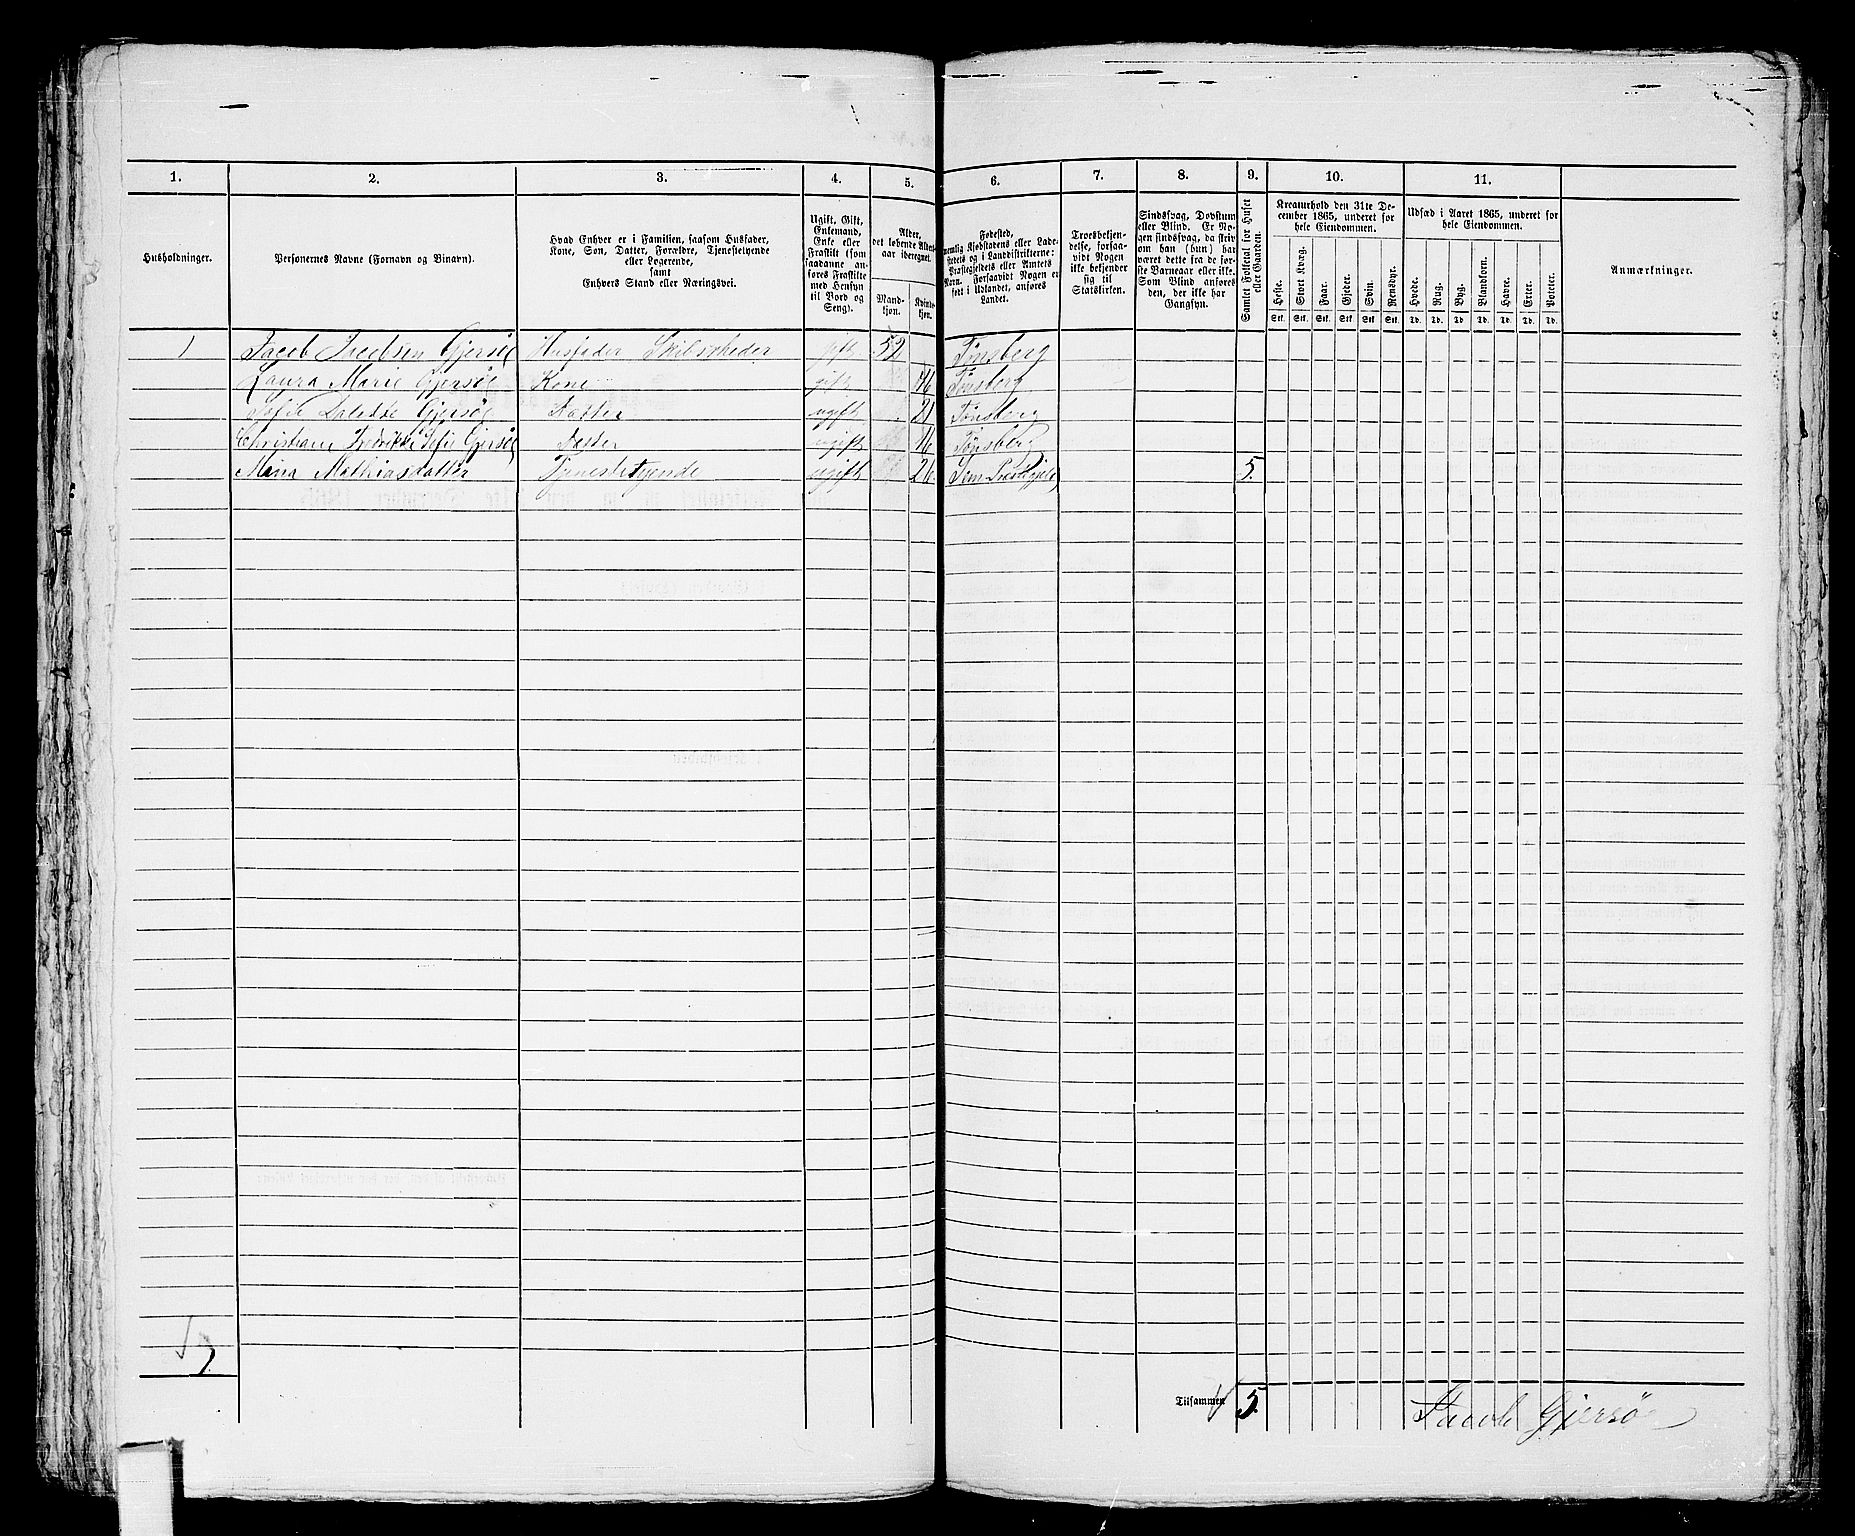 1. 2. 3. 4. 5. 6. 7. 8. 9. 10. 11.
Husholdninger.
Personernes Navne (Fornavn og Binavn).
Hvad Enhver er i Familien, saasom Husfader,
Kone, Søn, Datter, Forældre, Tjenestetyende
eller Logerende,
samt
Enhvers Stand eller Næringsvei.
Ugift, Gift,
Enkemand,
Enke eller
Fraskilt (som
saadanne an-
føres Fraskilte
med Hensyn
til Bord og
Seng).
Alder,
det løbende Alders-
aar iberegnet.
Mand-
kjøn.
Kvinde-
kjøn.
Fødested,
nemlig Kjøbstadens eller Lade-
stedets og i Landdistrikterne:
Præstegjeldets eller Amtets
Navn. Forsaavidt Nogen er
født i Udlandet, anføres
Landet.
Troesbekjen-
delse, forsaa-
vidt Nogen
ikke bekjender
sig til
Statskirken.
Sindssvag, Døvstum
eller Blind. Er No-
gen sindssvag, da skriv
om han (hun) har
været dette fra de før-
ste Barneaar eller ikke.
Som Blind anføres
den, der ikke har
Gangsyn.
Samlet Folketal for Huset
eller Gaarden.
Kreaturhold den 31te De-
cember 1865, underet for
hele Eiendommen.
Heste. Stort Kvæg. Faar. Gjeder. Svin. Rensdyr.
Stk. Stk. Stk. Stk. Stk. Stk.
Udsæd i Aaret 1865, underet for
hele Eiendommen.
Hvede. Rug. Byg. Blandkorn. Havre. Erter. Poteter.
Td. Td. Td. Td. Td. Td. Td.
Anmærkninger.
1 Jacob Jacobsen Gjersøe Husfader Skibsrheder gift 52 Tønsberg
Laura Marie Gjersøe Kone gift 46 Tønsberg
Sofie Gjersøe Datter ugift 21 Tønsberg
Christiane Fredrikke Sofie Gjersøe Datter ugift 16 Tønsberg
Mina Mathiasdatter Tjenestetyende ugift 26 Sem Præstegjeld 5.
Tilsammen 5.
Jacob Gjersøe